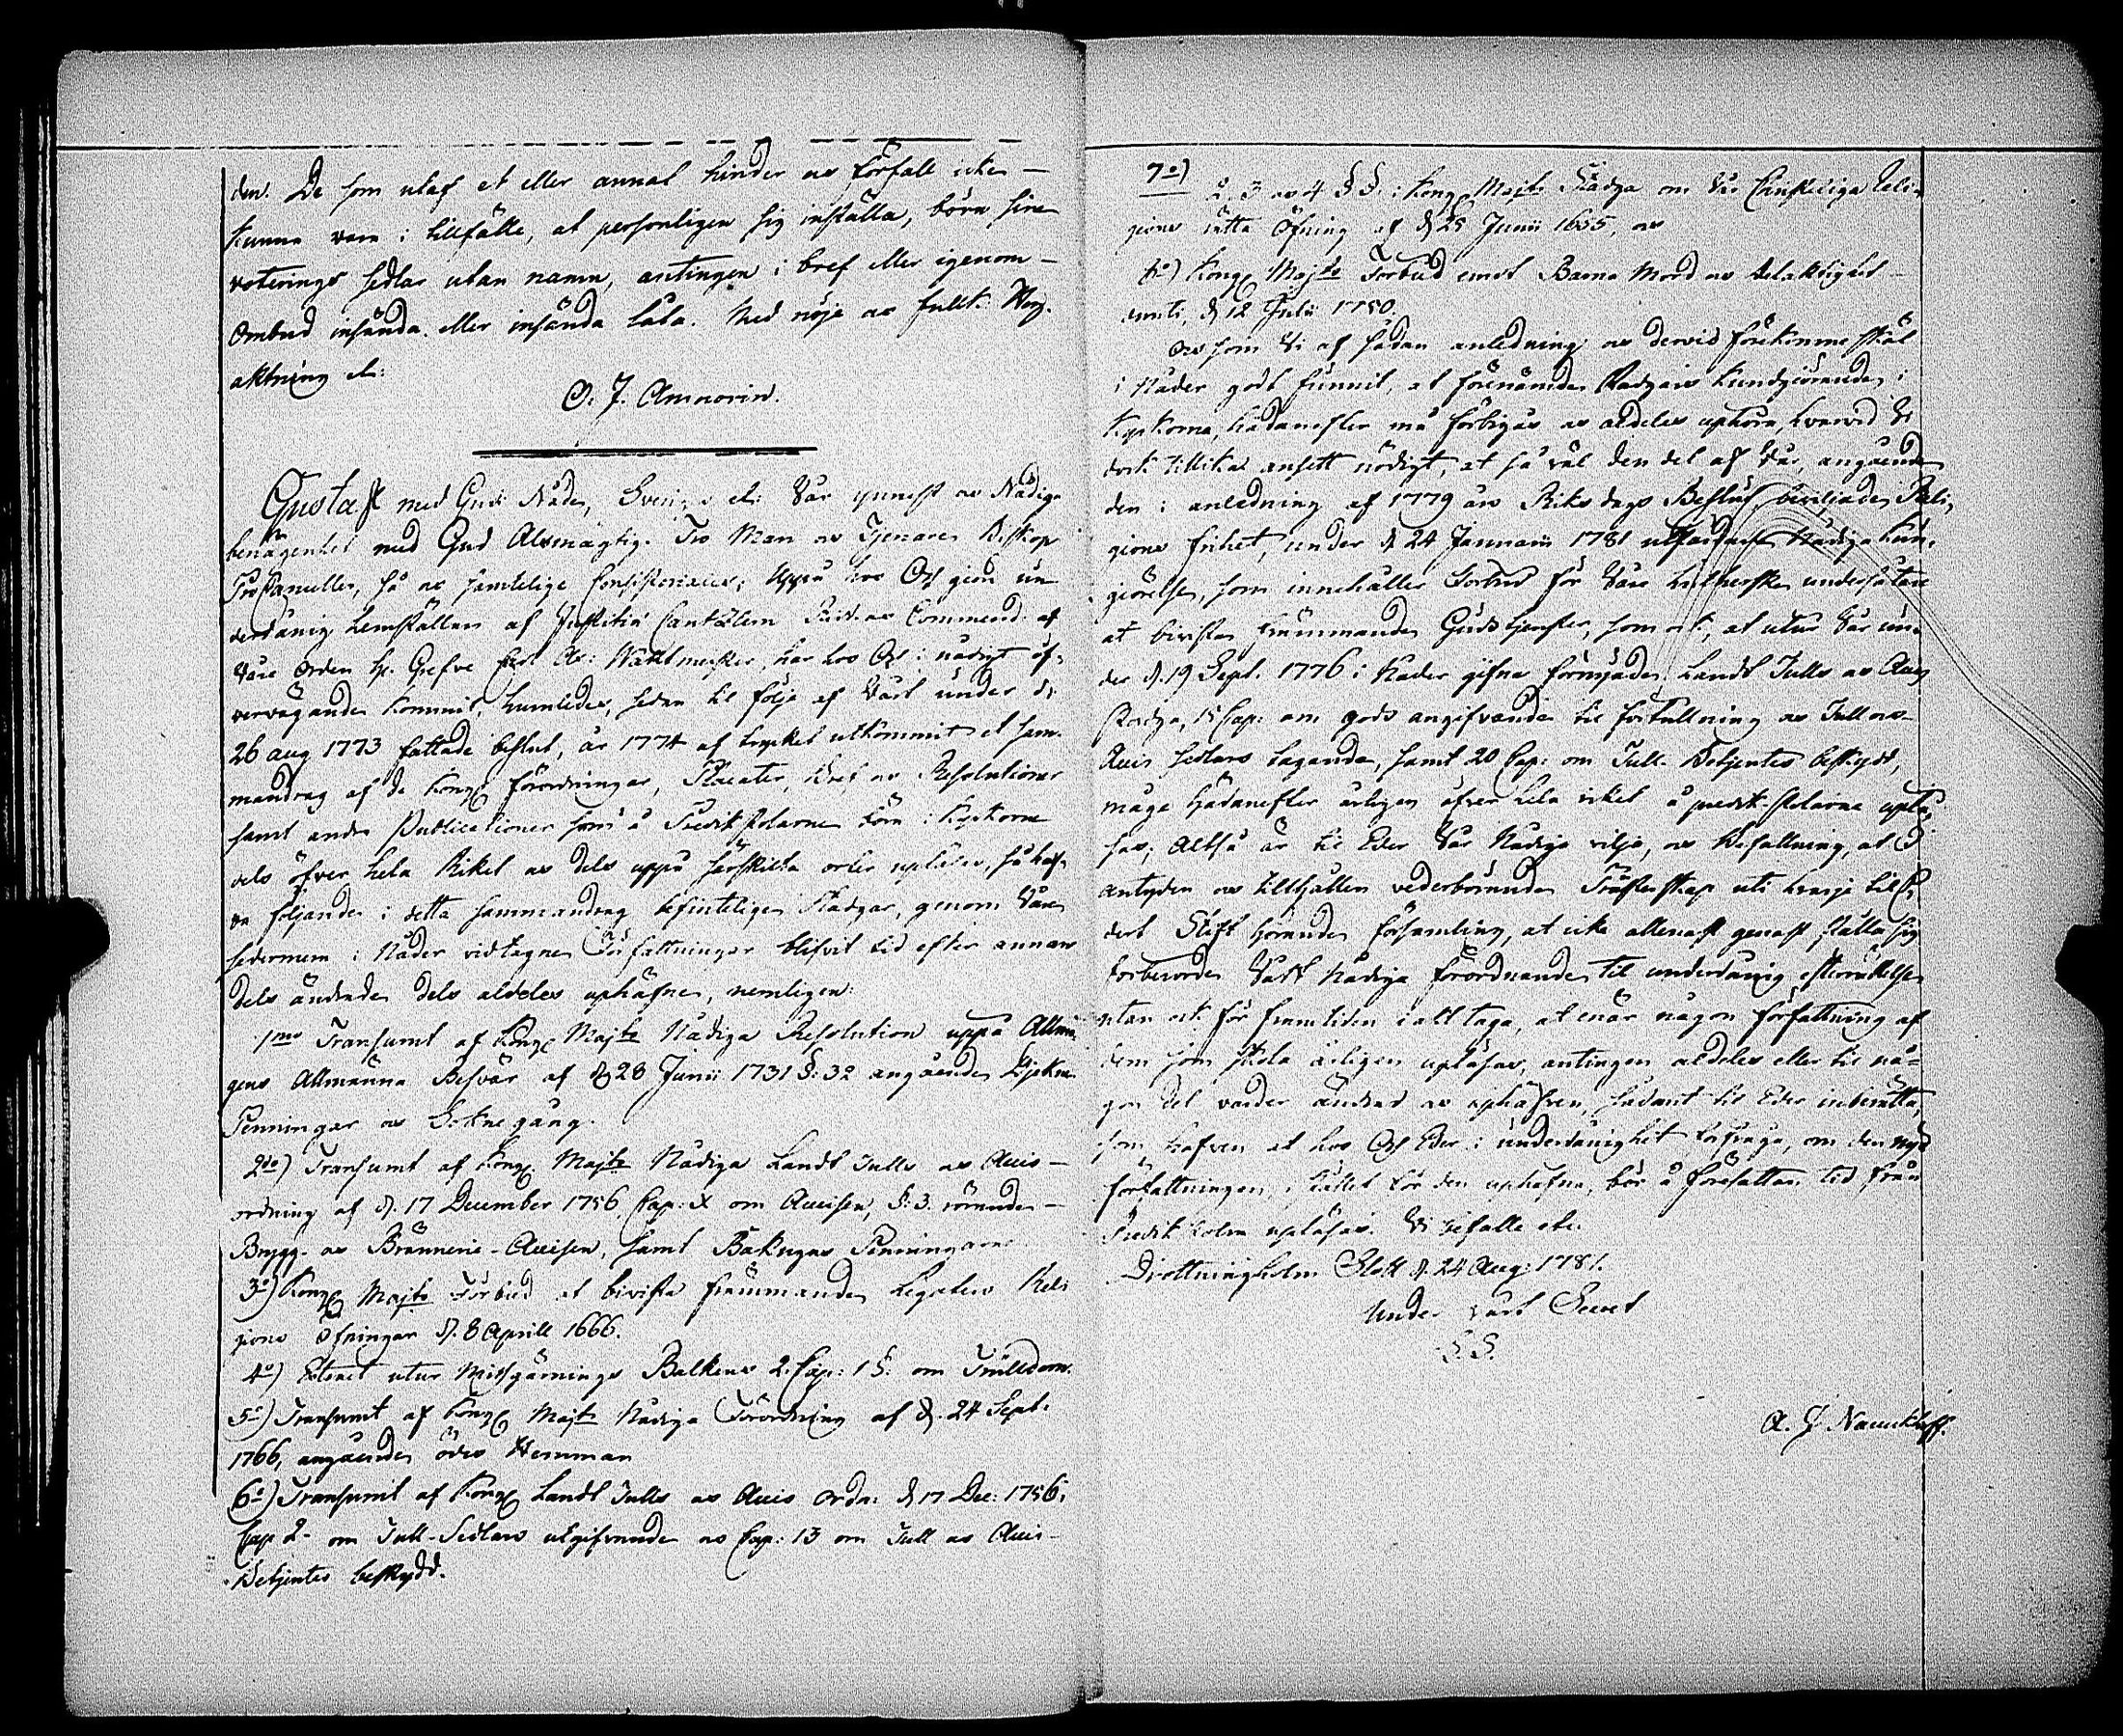 den. De som utaf et eller annat hinder oc förfall icke
kunna vara i tillfälle, at personligen sig inställa, böra sine
voterings sedlar utan namn, antingen i bref eller igenom
Ombud insända eller insända låta. Med nöje oc fullk: Hög-
aktning etc:
O. J. Amnorin.
Gustaf med Guds Nåde, Sveriges etc: Vår ynnest oc Nådiga
benägenhet med Gud Alsmägtig. Tro Man oc Tjenare Biskop
ProCanceller, så oc samtelige Consistoriales; Uppå hos Oss giord un-
derdånig hemställan af Justitiæ Cantzleren Ridd. oc Commend: af
Våre Orden Hr. Grefve Carl Ax: Wachtmeister, har hos Oss i nådigt öf-
vervägande kommit, huruledes, sedan til följe af Vårt under d.
26 aug 1773 fattade beslut, år 1774 af trycket utkommit et sam-
mandrag af de Kongl. förordningar, Placater, Bref oc Resolutioner
samt andre Publicationer som å Predikstolarne böra i Kyrkorne
dels öfver hela Riket oc dels uppå särskilta orter upläsas, så haf-
va följande i detta sammandrag befintelige Stadgar, genom Våre
sedermera i Nåder vidtagne Författningar blifvit tid efter annan
dels ändrade dels aldeles uphäfne, nemligen:
1mo Transumt af Kongl. Majts Nådiga Resolution uppå Allmo-
gens Allmänna Besvär af d 28 Junii 1731 §: 32 angående Djekne
Penningar oc Soknegång.
2do) Transumt af Kongl. Majts Nådiga Landt Tulls oc Accis-
ordning af d. 17 December 1756 Cap: X om Accisen, §: 3. rörande
Brygg- oc Brännerie-Accisen, samt Bakugns Penningarne
3o) Kongl. Majts Förbud at bivista främmande Legaters Reli
gions Öfningar d. 8 Aprill 1666.
4o) Extract utur Missgärnings Balkens 2. Cap: 1 §: om Trulldom.
5o) Transumt af Kongl. Majts Nådiga Förordning af d. 24 Sept.
1766, angående öde Hemman
6o) Transumt af Kongl. Landt Tulls oc Accis Ordn: d 17 Dec: 1756,
Cap 2. om Tull-Sedlars utgifvande oc Cap: 13 om Tull oc Accis-
Betjentes beskydd.
7o) 2, 3 oc 4 §§: i Kongl. Majts Stadga om Vår Christeliga Reli-
gions rätta Öfning af d 25 Junii 1655, oc
8o) Kongl. Majts Förbud emot Barna Mord oc delaktighet
deruti, d 12 Julii 1750.
Oc som Vi af sådan anledning oc dervid förekomne skäl
i Nåder godt funnit, at förenämde Stadgars kundgiörande i
Kyrkorne, hädanefter må förbigås oc aldeles uphöra, hvarvid Vi
dock tillika ansett nödigt, at så väl den del af Vår, angående
den i anledning af 1779 års Riksdags Beslut, beviljade Reli-
gions frihet, under d 24 Januarii 1781 utfärdade Nådiga Kun-
giörelse, som innehåller Förbud för Våre Lutherske undersåtare
at bivista främmande Gudstjenster, som ock, at utur Vår un-
der d. 19 Sept. 1776 i Nåder gifne förnyade Landt Tulls oc Accis
Stadga, 15 Cap: om gods angifvande til förtullning oc Tull oc
Accis sedlars tagande, samt 20 Cap: om Tull Betjentes beskydd,
måge hädanefter årligen öfver hela riket å predik-stolarne uplä-
sas; Altså är til Eder Vår Nådiga vilje, oc Befallning, at I
antyden oc tilhållen vederbörande Prästerskap uti hvarje til E-
dert Stift hörande församling, at icke allenast genast ställa sig
förberörde Vårt Nådiga förordnande til underdånig efterrättelse
utan ock för framtiden i akt taga, at enär någon författning af
dem som skola årligen upläsas, antingen aldeles eller til nå-
gon del varder ändrad oc uphäfven, sådant til Eder inberätta,
som hafven at hos Oss Eder i underdånighet förfråga, om den nya
författningen, i stället för den uphäfne, bör å föresattan tid från
Predikstolen upläsas. Vi befalle etc.
Drottningholms Slott d. 24 Aug: 1781.
Under vårt Secret
L. S.
A. J. Nauckhoff.